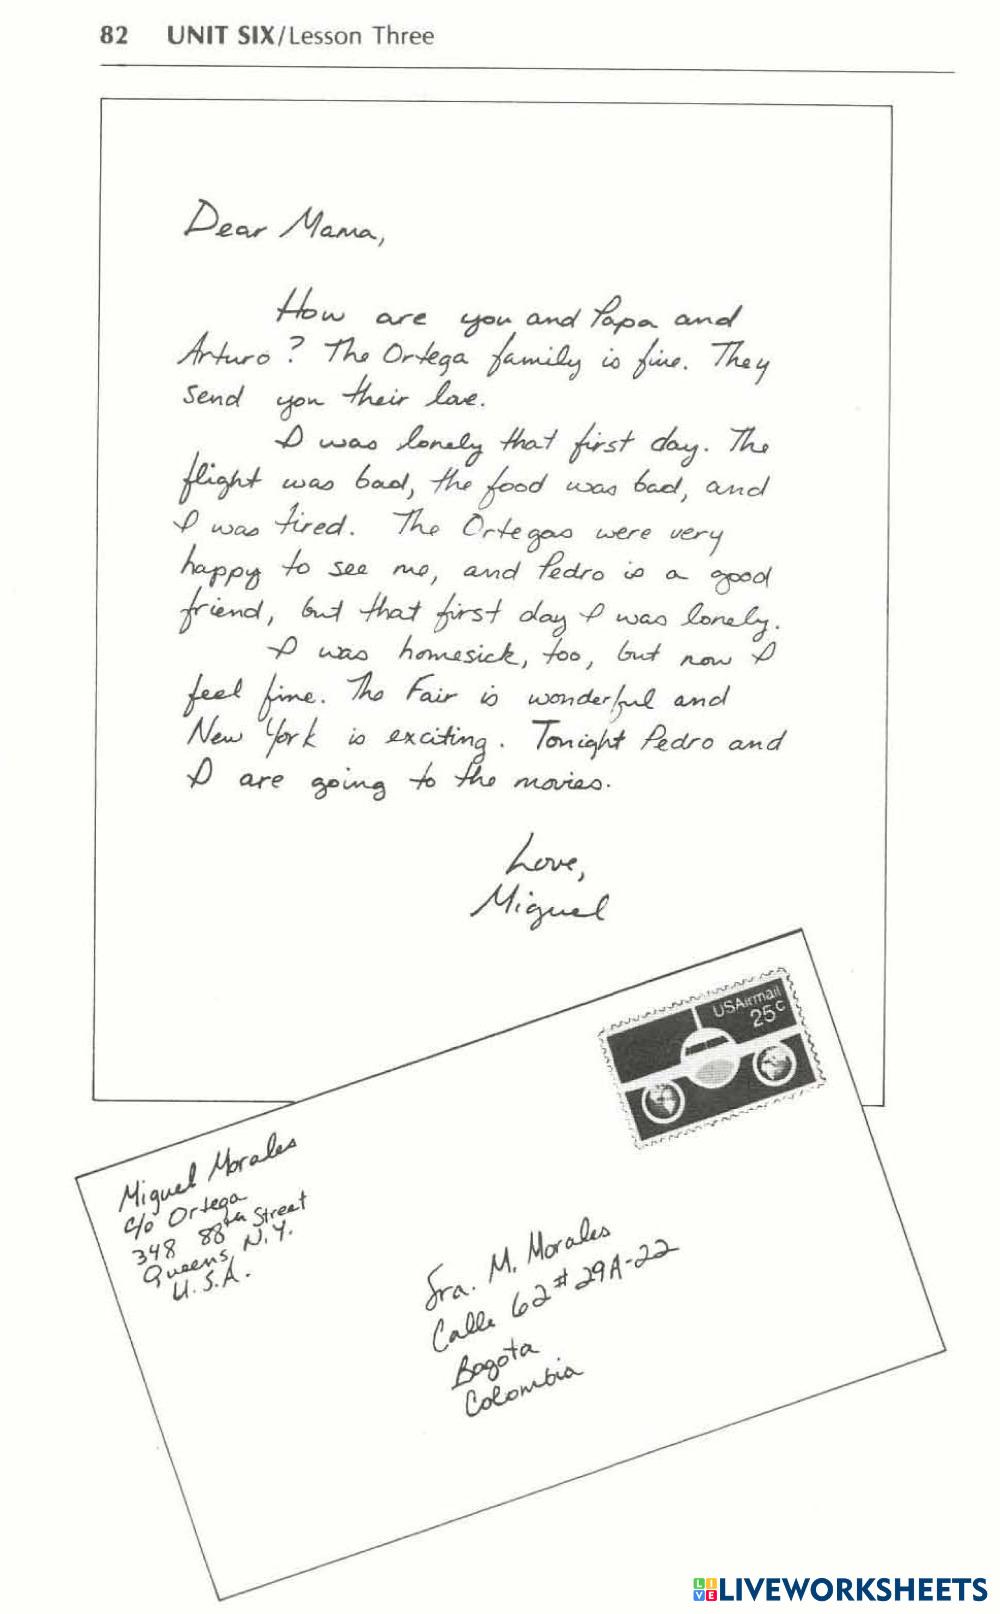 82 UNIT SIX/Lesson Three
Dear Mama,
How are you and Papa and
Arturo? The Ortega family is fine. They
send you their love.
I was lonely that first day. The
flight was bad, the food was bad, and
I was tired. The Ortegas were very
happy to see me, and Pedro is a good
friend, but that first day I was lonely.
I was homesick, too, but now I
feel fine. The Fair is wonderful and
New York is exciting. Tonight Pedro and
I are going to the movies.
Love,
Miguel
USAirmail
25c
Miguel Morales
c/o Ortega
348 88th Street
Queens, N.Y.
U.S.A.
Sra. M. Morales
Calle 62 # 29A-22
Bogota
Colombia
LIVEWORKSHEETS